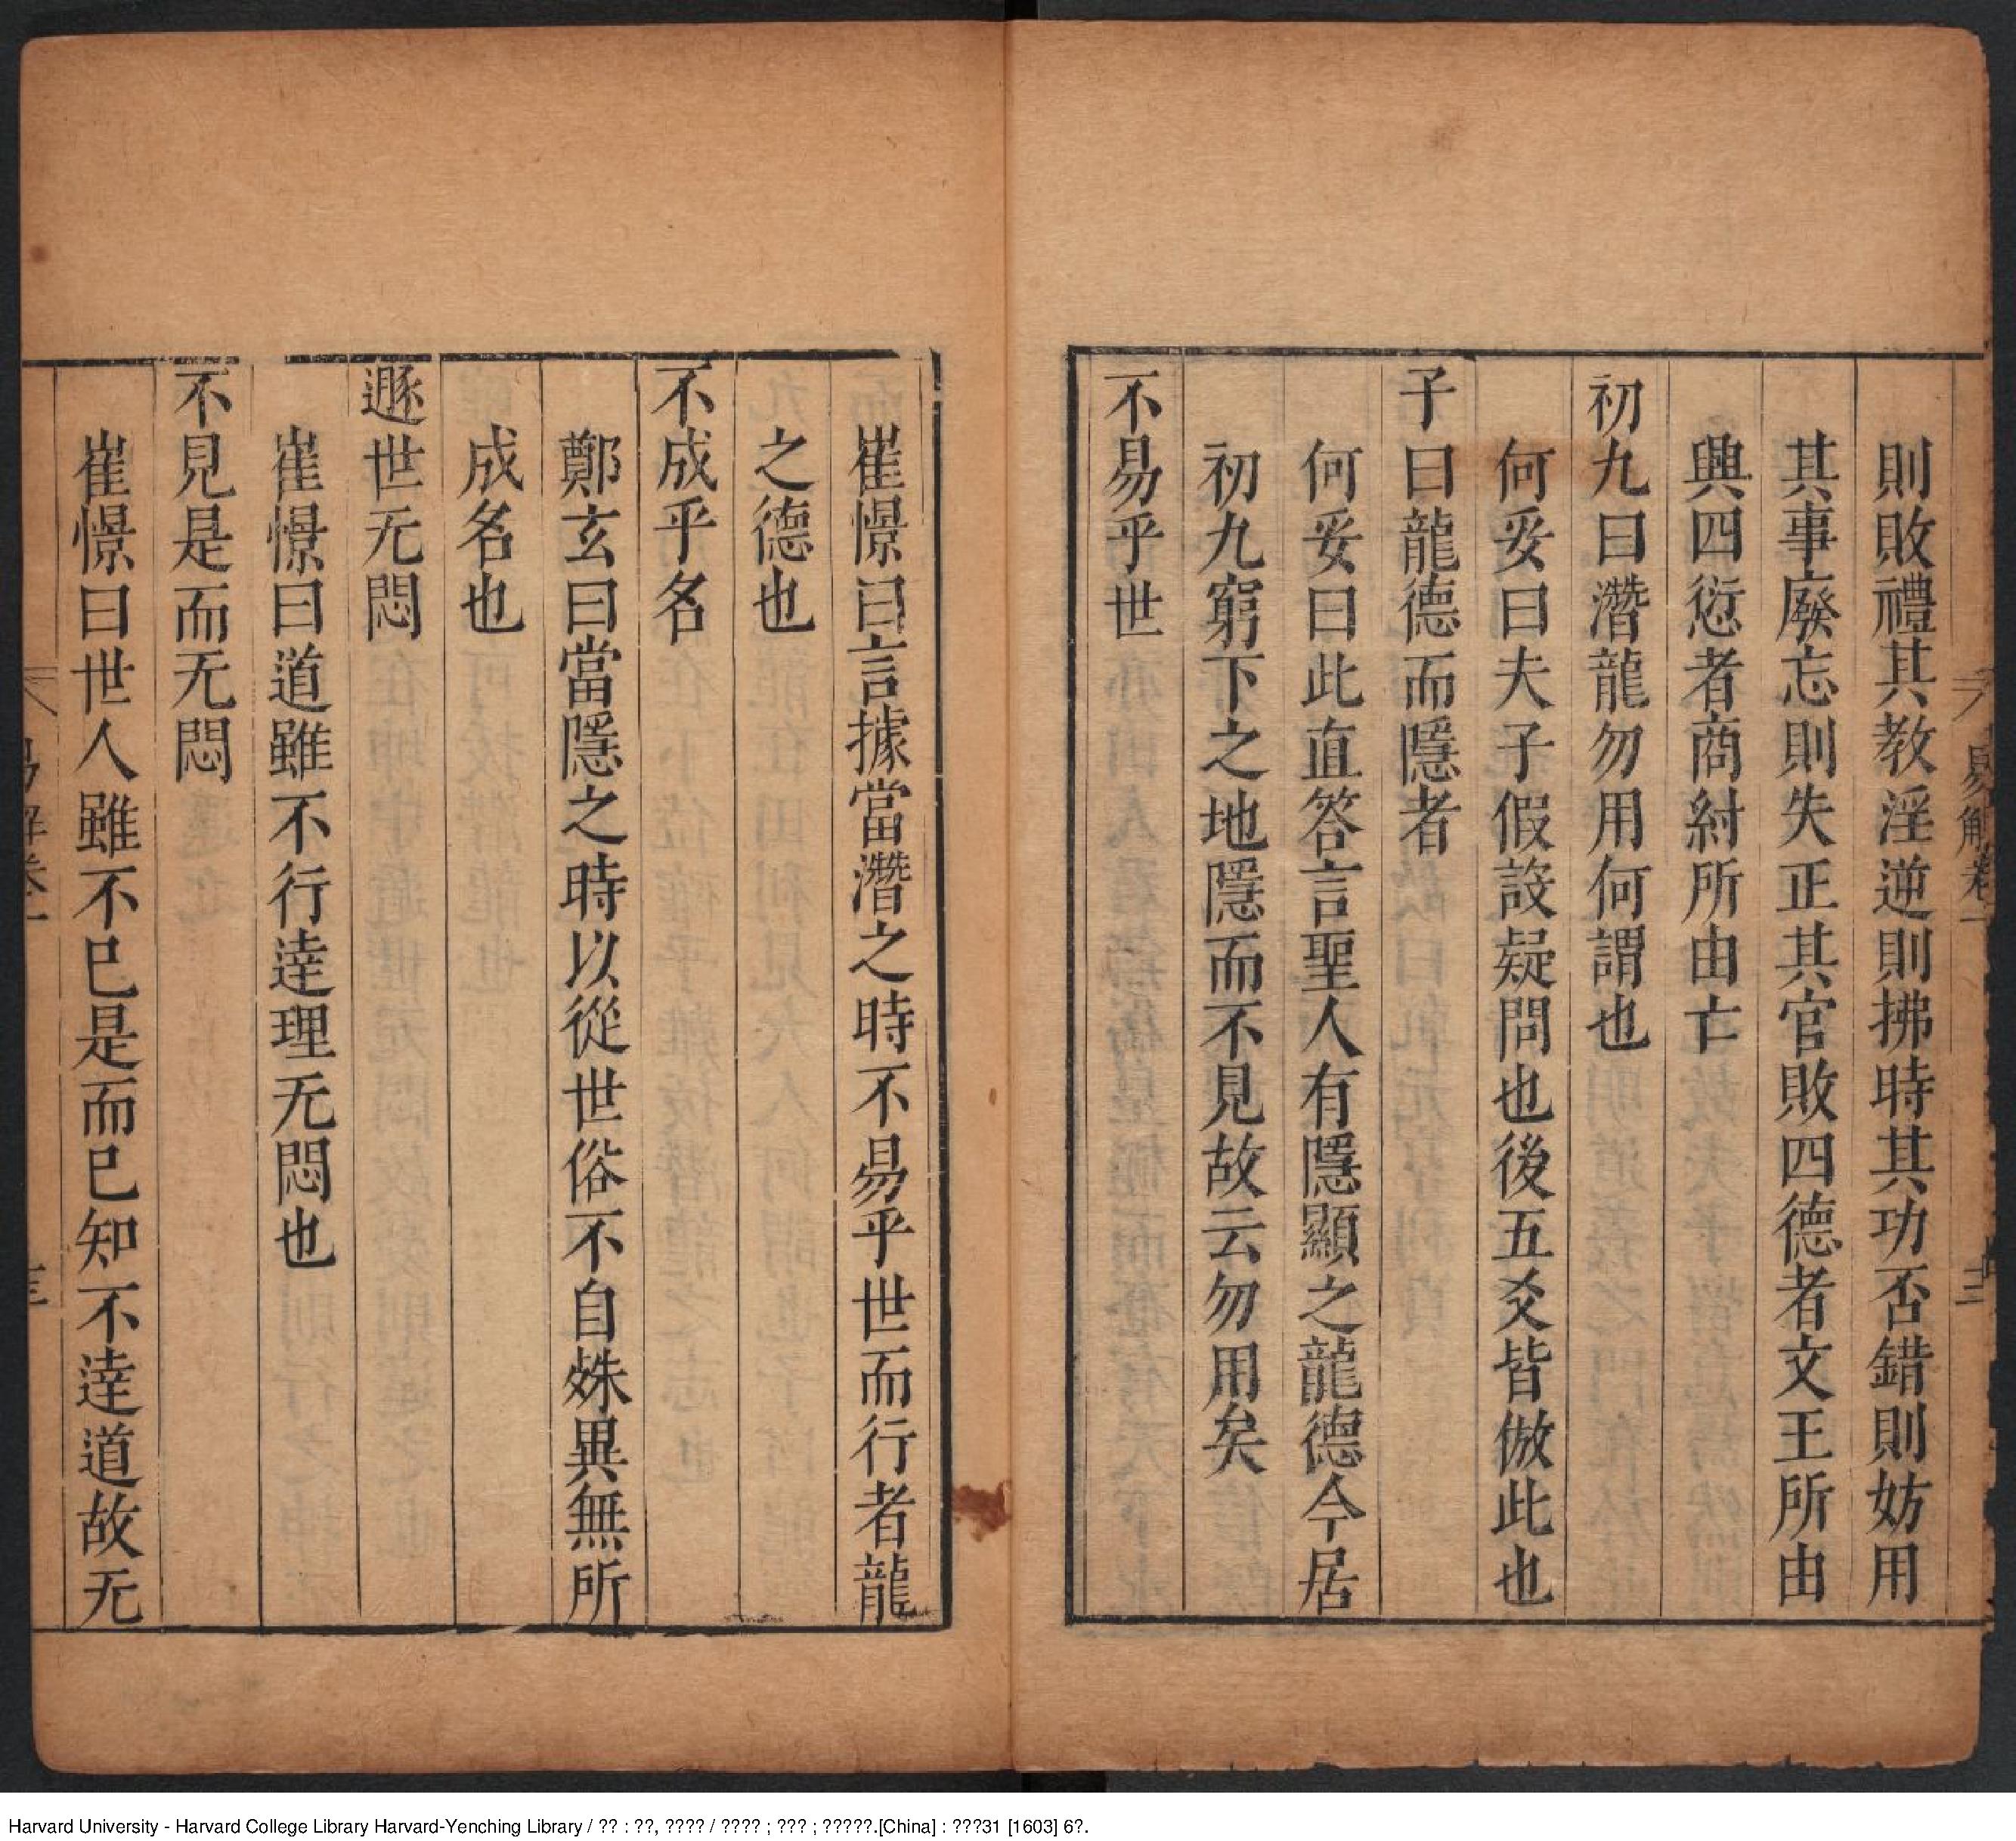 則敗禮其教淫逆則拂時其功否錯則妨用
其事廢忘則失正其官敗四德者文王所由
興四愆者商紂所由亡
初九曰潛龍勿用何謂也
何妥曰夫子假設疑問也後五爻皆倣此也
子曰龍德而隱者
何妥曰此直答言聖人有隱顯之龍德今居
初九窮下之地隱而不見故云勿用矣
不易乎世
崔憬曰言據當潛之時不易乎世而行者龍
之德也
不成乎名
鄭玄曰當隱之時以從世俗不自殊異無所
成名也
遯世无悶
崔憬曰道雖不行達理无悶也
不見是而无悶
崔憬曰世人雖不巳是而巳知不達道故无
易解卷一
Harvard University - Harvard College Library Harvard-Yenching Library / ?? : ??, ???? / ???? ; ??? ; ?????.[China] : ???31 [1603] 6?.